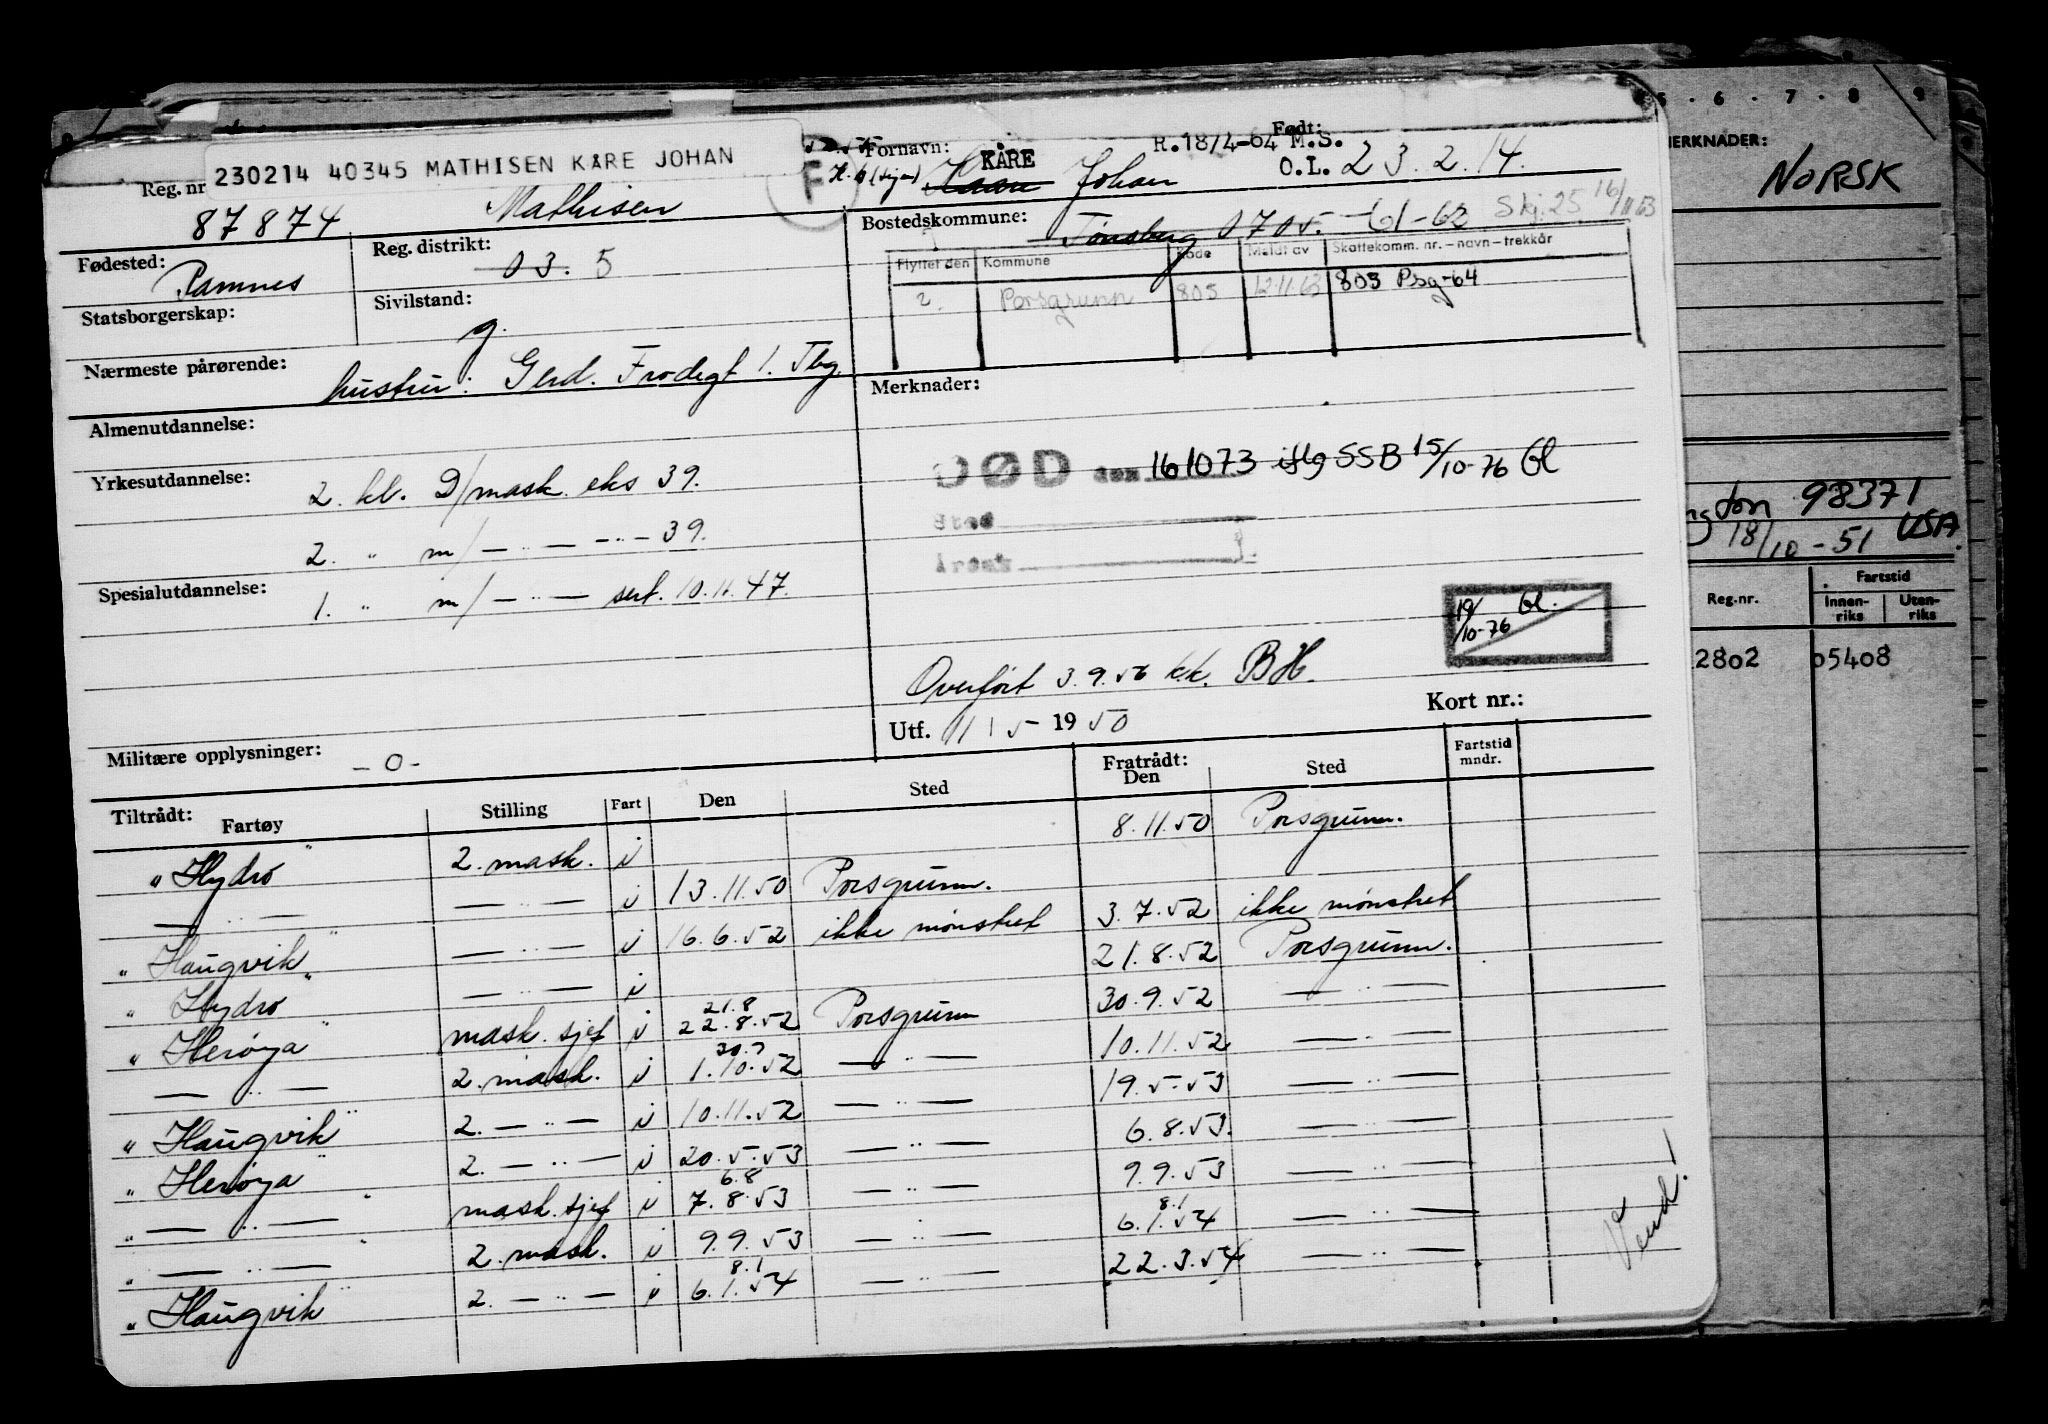 230214 40345 MATHISEN KÅRE JOHAN
F
Reg. nr
87874
Mathisen
Fornavn: KÅRE Johan
R. 18/4-64 M.S.
Født:
O.L. 23.2.14.
Fødested:
Ramnes
Reg. distrikt:
03. 5
Bostedskommune:
Tønsberg 0705. 61-62 Skj. 25 16/11 63
Flyttet den Kommune Kode Meldt av Skattekomm. nr. – navn – trekkår
2. Porsgrunn 805 12.11.63 805 Psg-64
Statsborgerskap:
Sivilstand:
g.
Nærmeste pårørende:
hustru: Gerd. Frodegt 1. Tbg.
Almenutdannelse:
Merknader:
DØD den 161073 iflg SSB 15/10-76 Gl
Sted
Årsak
Yrkesutdannelse:
2. kl. D/mask. eks 39.
2. " m/ — " — — " — 39.
Spesialutdannelse:
1. " m/ — " — sert. 10.11.47.
19/10-76 Gl.
Overført 3.9.56 k.k. BH.
Utf. 11 5 - 1950
Kort nr.:
Militære opplysninger:
- 0 -
Tiltrådt:
Fartøy Stilling Fart Den Sted Fratrådt: Den Sted Fartstid mndr.
"Hydro" 2. mask. i 8.11.50 Porsgrunn.
— " — — " — i 13.11.50 Porsgrunn.
"Haugvik" — " — i 16.6.52 ikke mønstret 3.7.52 ikke mønstret
"Hydro" — " — i 21.8.52 Porsgrunn.
"Herøya" mask. sjef i 21.8 22.8.52 Porsgrunn 30.9.52 — " —
— " — 2. mask. i 30.9 1.10.52 — " — 10.11.52 — " —
"Haugvik" 2. — " — i 10.11.52 — " — 19.5.53 — " —
"Herøya" 2. — " — i 20.5.53 — " — 6.8.53. — " —
" — " — " mask. sjef i 6.8 7.8.53 — " — 9.9.53 — " —
" — " — " 2. mask. i 9.9.53 — " — 8.1 6.1.54 — " —
"Haugvik" 2. — " — i 8.1 6.1.54 — " — 22.3.54 — " —
Vend!
5 · 6 · 7 · 8 · 9
MERKNADER:
NORSK
ton 98371
18/10-51 USA.
Reg.nr.
Fartstid
Innenriks
Utenriks
2802 05408